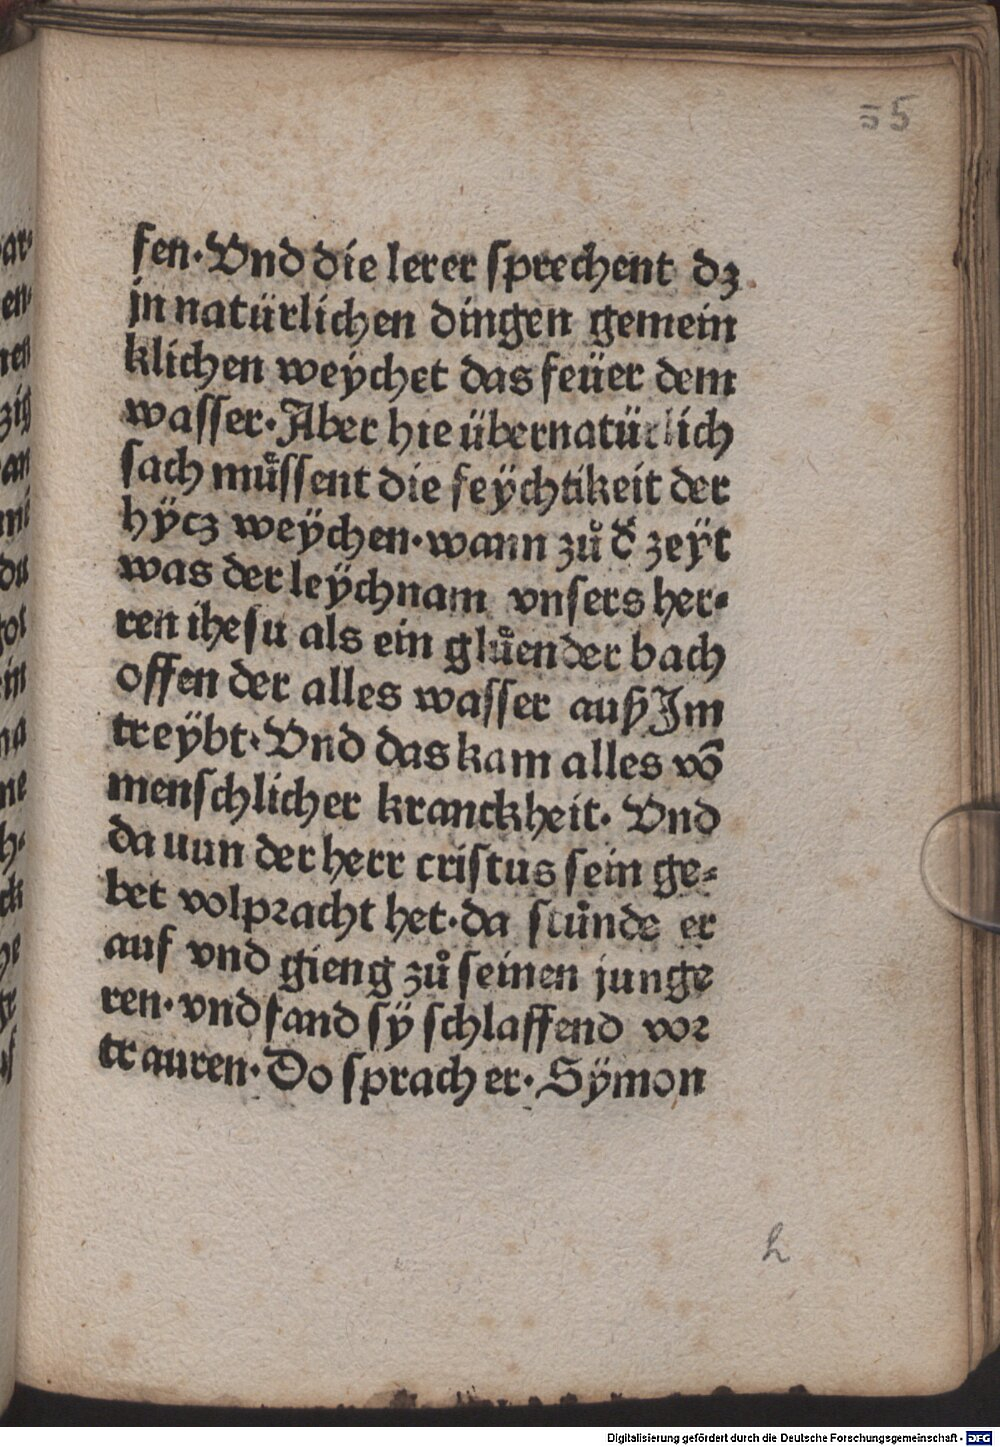 55
fen. Vnd die lerer sprechent dz
jn natürlichen dingen gemein
klichen weÿchet das feüer dem
wasser. Aber hie übernatürlich
sach muͤssent die feÿchtikeit der
hÿcz weÿchen. wann zuͦ d̕ zeÿt
was der leÿchnam vnsers her-
ren ihesu als ein gluͤender bach
offen der alles wasser auß Im
treÿbt. Vnd das kam alles võ
menschlicher kranckheit. Vnd
da nun der herr cristus sein ge-
bet volpracht het. da stuͦnde er
auf vnd gieng zuͦ seinen junge
ren. vnd fand sÿ schlaffend vor
trauren. Do sprach er. Sÿmon
h
Digitalisierung gefördert durch die Deutsche Forschungsgemeinschaft - DFG